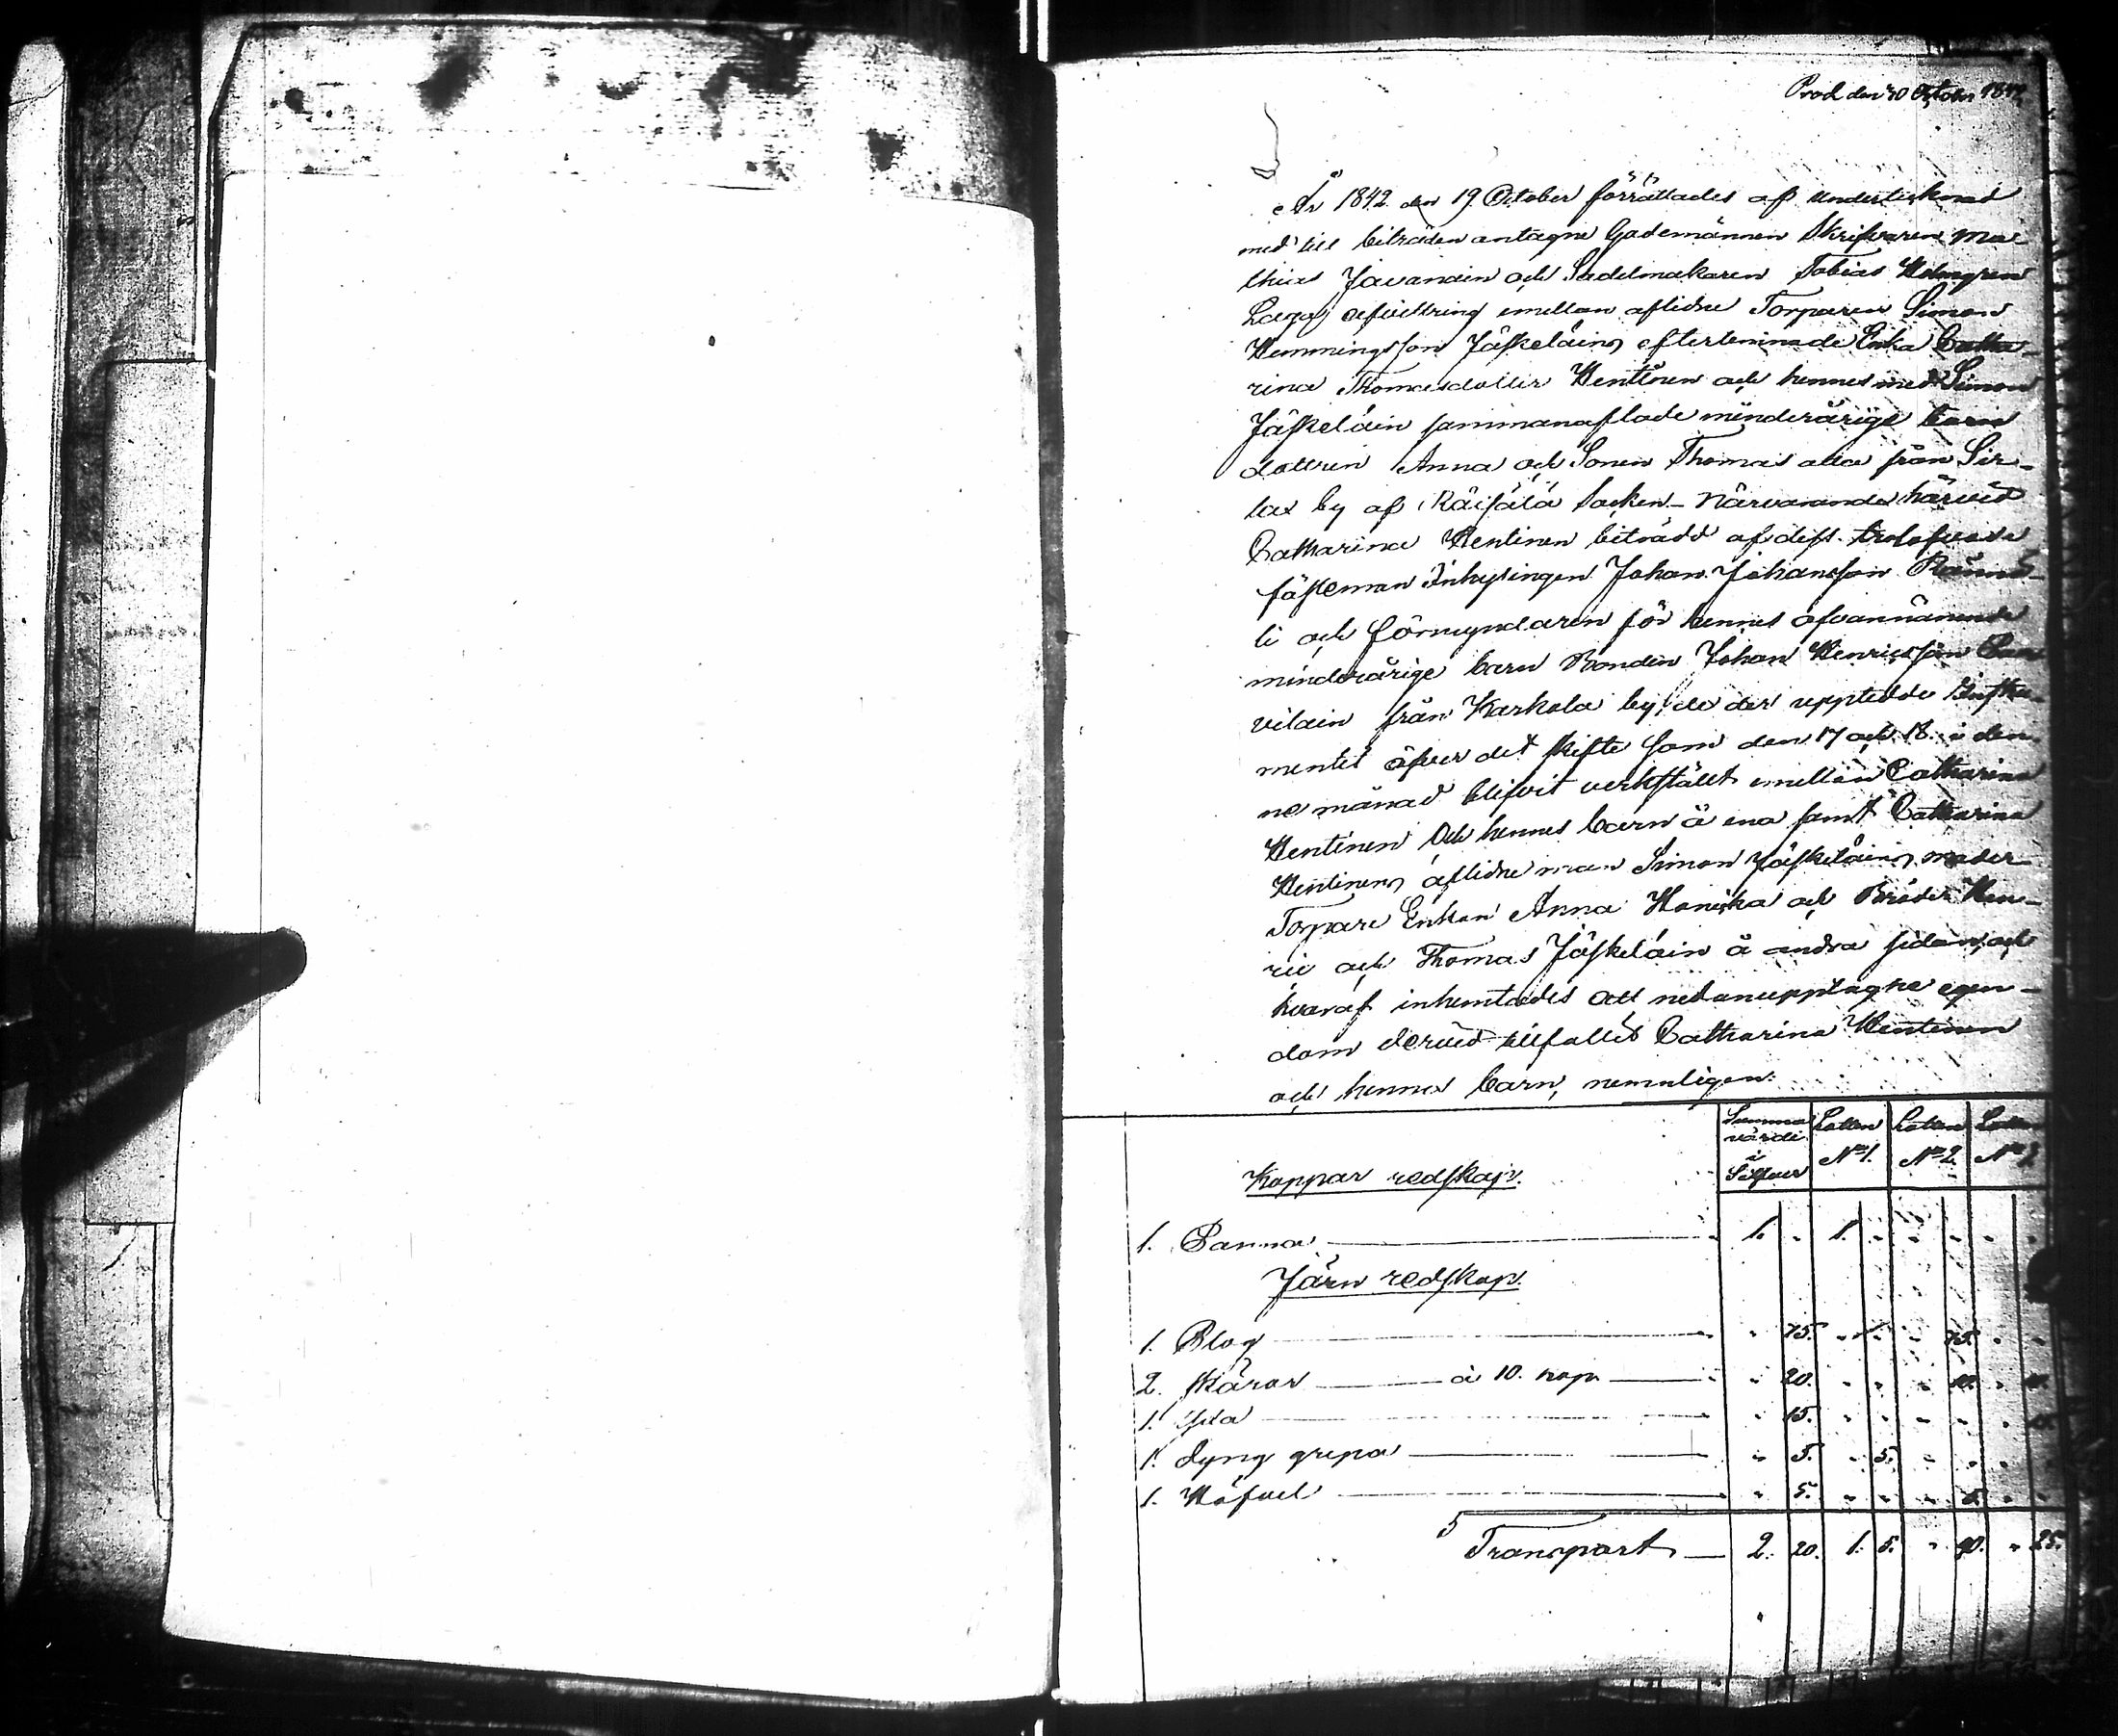 Prod. den 20 October 1842
År 1842 den 19 October förrättades af undertecknad
med till biträden antagne Godemännen Skrifvaren Ma-
thias Javanain och Sadelmakaren Tobias Holmgren
Laga afvittring emellan aflidne Torparen Simon
Hemmingsson Jäskeläins efterlemnade Enka Catha-
rina Thomasdotter Hentinen och hennes med Simon
Jäskeläin sammanaflade minderårige barn
dottren Anna och Sonen Thomas alla från Sir-
lax by af Räisälä Socken. Närvarande härvid
Catharina Hentinen biträdd af dess trolofvade
fästeman Inhysingen Johan Johansson
och förmyndaren för hennes ofvannämnde
minderårige barn Bonden Johan Henricsson
vilain från Karhola by, de der uppledde Instru-
mentet öfver det skifte som den 17 och 18 i den-
ne månad blifvit verkstäldt emellan Catharina
Hentinen och hennes barn å ena samt Catharina
Hentinens aflidne man Simon Jäskeläins moder
Torpare Enkan Anna Hanikka och Bröder Hen-
ric och Thomas Jäskeläin å andra sidan, och
hvaraf inhemtades att nedanupptagne egen-
dom dervid tillfallit Catharina Hentinen
och hennes barn, nemnligen:
Summa värde i Silfver Lotten No 1. Lotten No 2. Lotten No 3
Koppar redskap.
1. Panna 1. " 1. " " " " "
Järn redskap.
1. Plog " 75. " " " 75. " "
2. Skäror à 10. kop " 20. " " " 10. " 10.
1. " 15. " " " " " 15.
1. dyng grepa " 5. " 5. " " " "
1. Höfvel " 5. " " " 5. " "
Transport 2. 20. 1. 5. " 90. " 25.